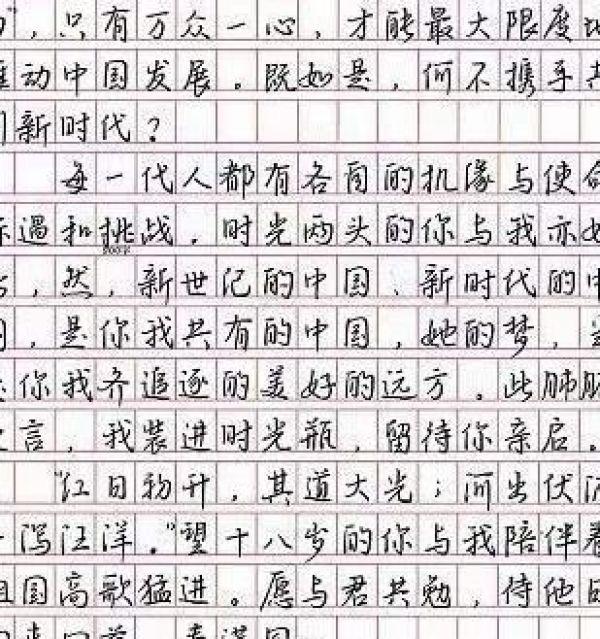 ”，只有万众一心，才能最大限度地
推动中国发展。既如是，何不携手共
同新时代？
每一代人都有各自的机缘与使命
际遇和挑战，时光两头的你与我亦如
，然，新世记的中国、新时代的中
国，是你我共有的中国，她的梦，
你我齐追逐的美好的远方。此肺腑
之言，我装进时光瓶，留待你亲启。
“红日初升，其道大光；河出伏流
一泻汪洋。”望十八岁的你与我陪伴着
祖国高歌猛进。愿与君共勉，待他日